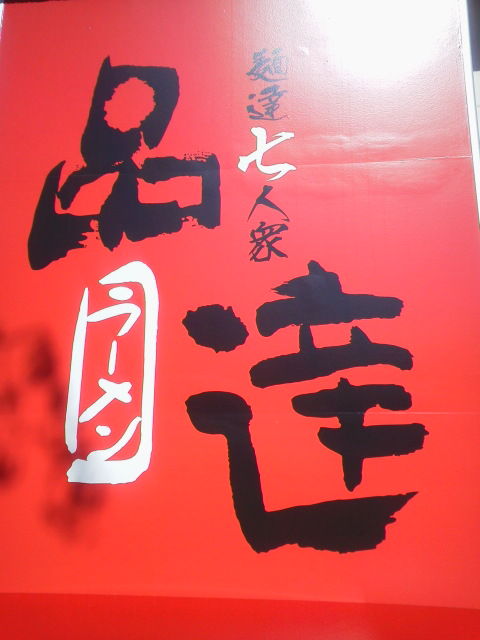 麺達七人衆
品達
ラーメン